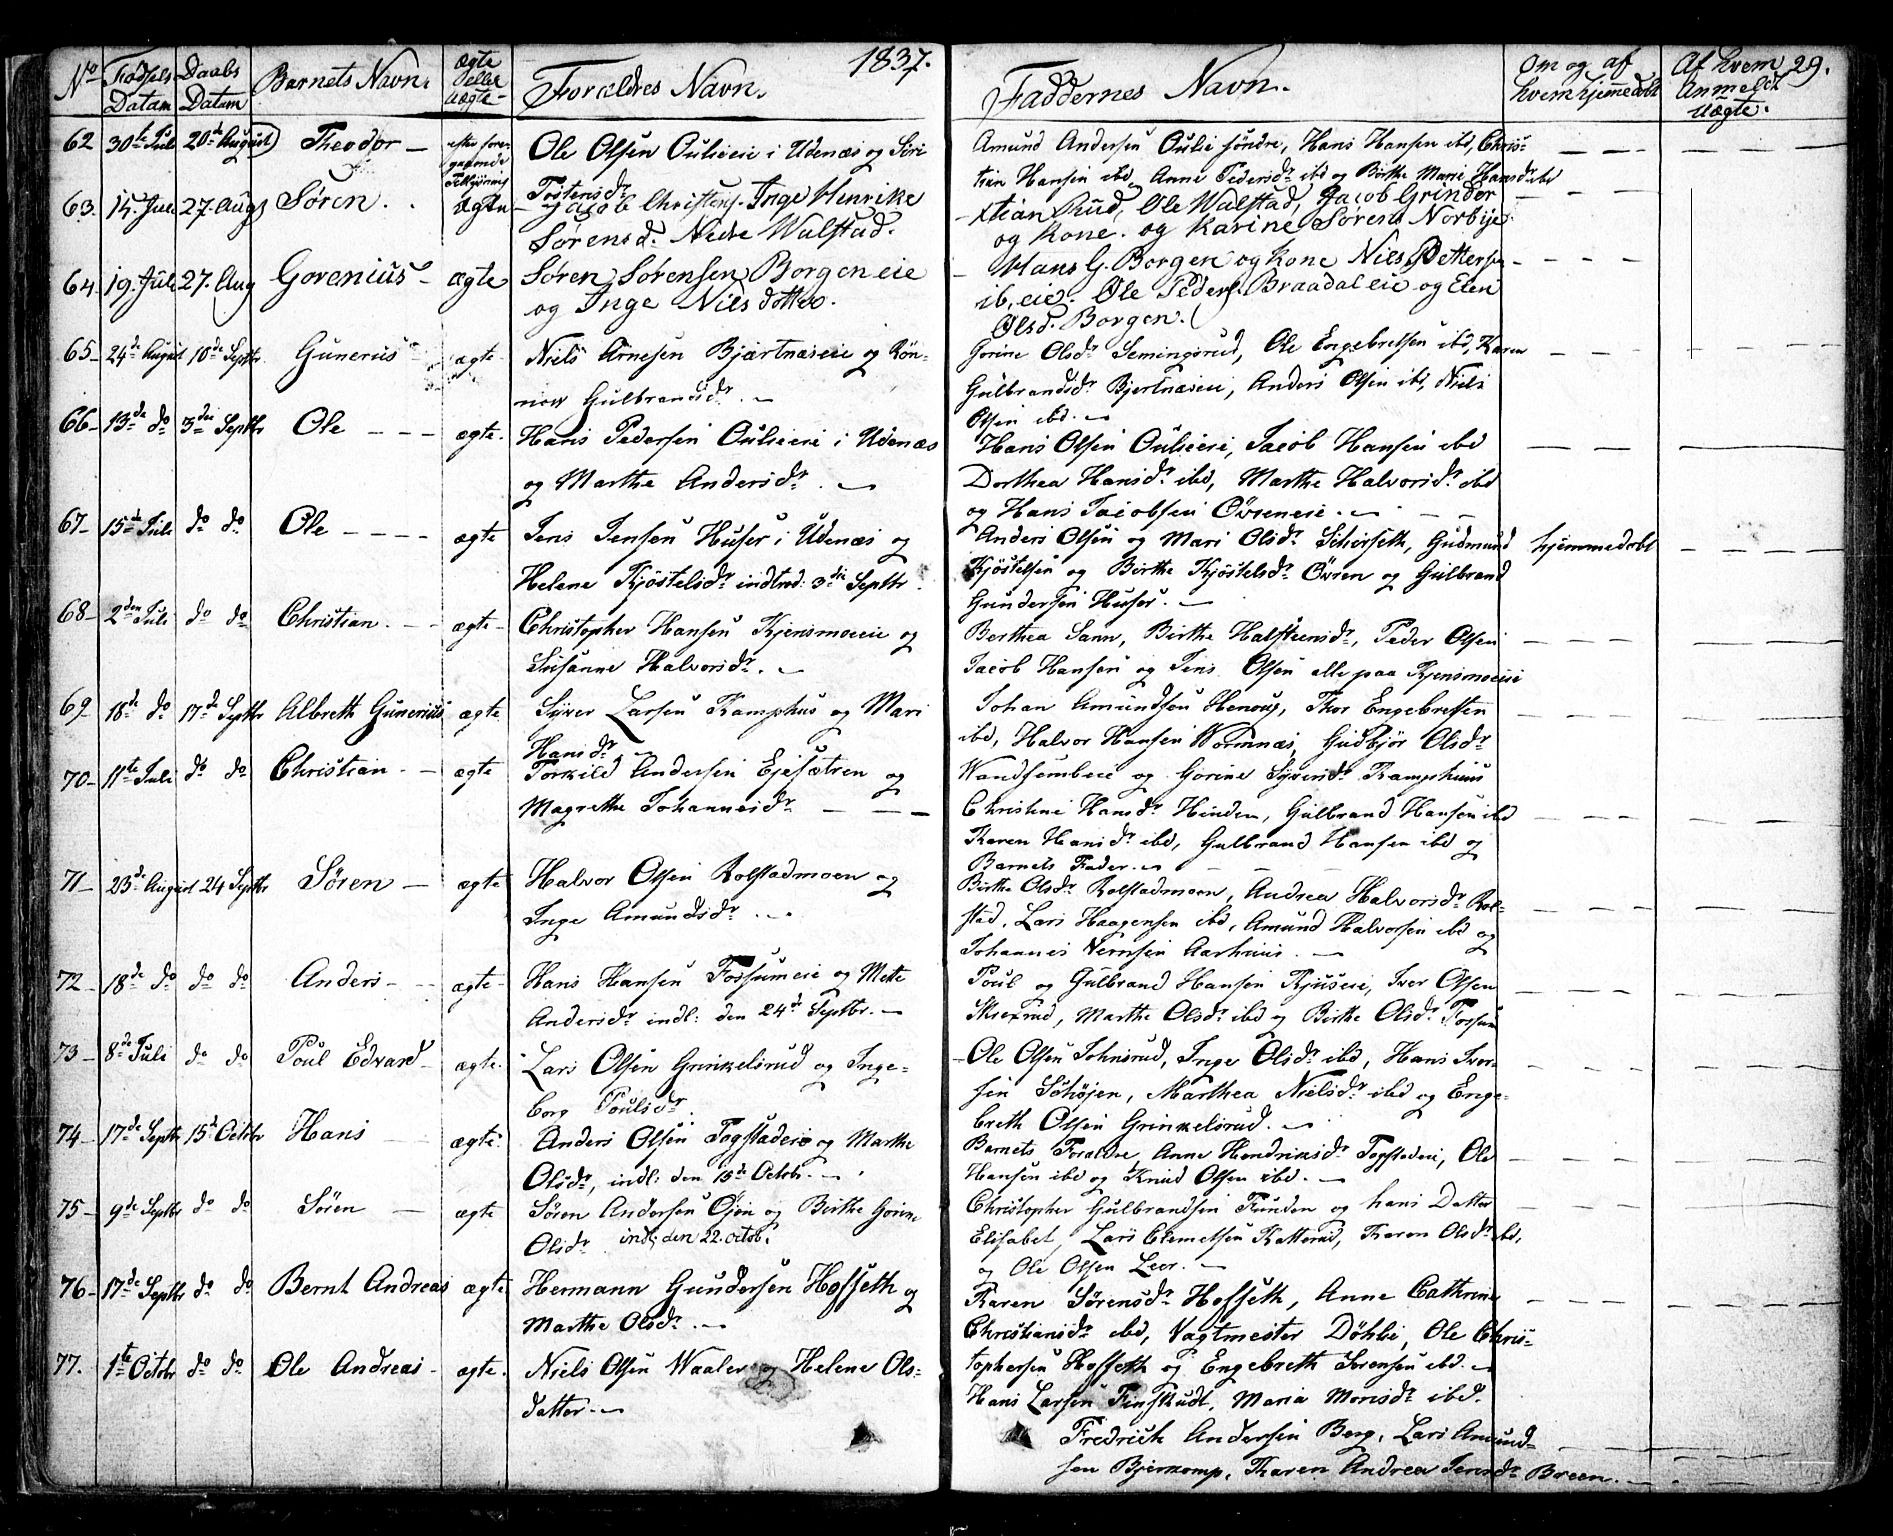 1837.
29.
No Fødsels Datum Daabs Datum Barnets Navn. ægte eller uægte Forældres Navn. Faddernes Navn. Om og af hvem hjemedøbt Af hvem Anmeldt uægte.
62 30te Juli 20de August Theodor — efter foregaaende Ole Olsen Oulieeie i Udenæs og Siri
Tostensdr
Amund Andersen Oulie søndre, Hans Hansen ibd, Chris-
tian Hansen ibd, Anne Pedersdr ibd og Birthe Marie Hansdr ibd
63. 15. Juli 27. Aug Søren. Ægte Jacob Christens. Inge Henrike
Sørensd. Nedre Walstad.
Xtian Rud, Ole Walstad, Jacob Grinder
og Kone. og Karine Sørens Norbye.
64 19. Juli 27. Aug Gorenius — ægte Søren Sørensen Borgen eie
og Inge Nilsdotter.
Hans G. Borgen og Kone Niels Petterse
ib, eie. Ole Peders. Braadal eie og Elen
Olsd. Borgen.
65 — 24de August 10de Septbr. Gunerius ægte Niels Arnesen Bjærtnæseie og Røn-
now Gulbrandsdr. —
Gorine Olsdr Semingsrud, Ole Engebretsen ibd, Karen
Gulbrandsdr Bjertnæseie, Anders Olsen ibd, Niels
Olsen ibd. —
66 — 13de do 3die Septbr Ole — — — ægte. Hans Pedersen Oulieeie i Udenæs
og Marthe Andersdr. —
Hans Olsen Oulieeie, Jacob Hansen ibd
Dorthea Hansdr ibd, Marthe Halvorsdr ibd
og Hans Jacobsen Øvreneie. —
67 — 15de Juli do do Ole — — — — ægte Jens Jensen Huser i Udenæs og
Helene Kjøstelsdr indtrd: 3die Septbr.
Anders Olsen og Mari Olsdr Scherseth, Gudmund
Kjøstelsen og Birthe Kjøstelsdr Øvren og Gulbrand
Gundersen Huser. —
hjemmedøbt
68 — 2den Juli do do Christian. — — ægte — Christopher Hansen Kjensmoeeie og
Susanne Halvorsdr. —
Berthea Sann, Birthe Halsteensdr, Peder Olsen
Jacob Hansen og Jens Olsen alle paa Kjensmoeeie
69 18de do 17de Septbr Albreth Gunerius ægte Syver Larsen Kamphus og Mari
Hansdr
Johan Amundsen Henoug, Thor Engebretsen
ibd, Halvor Hansen Wormnæs, Gudbjør Olsdr
Wandsembeie og Gorine Syversdr Kamphuus
70 — 11te Juli do do Christian — — ægte Torkild Andersen Ejesætren og
Magrethe Johannesdr. — — —
Christine Hansdr Hinden, Gulbrand Hansen ibd
Karen Hansdr ibd, Gulbrand Hansen ibd og
Barnets Fader. —
71 — 23de August 24 Septbr Søren — ægte Halvor Olsen Rolstadmoen og
Inge Amundsdr.
Birthe Olsdr Rolstadmoen, Andrea Halvorsdr Rol-
stad, Lars Haagensen ibd, Amund Halvorsen ibd og
Johannes Aarhuus. —
72 — 18de do do do Anders — — ægte — Hans Hansen Fossumeie og Mette
Andersdr indl: den 24de Septbr. —
Poul og Gulbrand Hansen Kjuseeie, Iver Olsen
Marthe Olsdr ibd og Birthe Olsdr Fossum
73 — 8de Juli do do Poul Edvard — ægte. Lars Olsen Grinkelsrud og Inge-
borg Poulsdr.
— Ole Olsen Johnsrud, Inge Olsdr ibd, Hans Iver-
sen Schøjen, Marthea Nielsdr ibd og Enge-
breth Olsen Grinkelsrud. —
74 — 17de Septbr 15de Octobr Hans — ægte Anders Olsen Fogstadeie og Marthe
Olsdr, indl: den 15de Octobr. —
Barnets Forældre, Anne Hendriksdr Fogstadeie, Ole
Hansen ibd og Knud Olsen ibd. —
75 — 9de Septbr do do Søren — ægte Søren Andersen Ojen og Birthe Gorine
Olsdr indl: den 22. octob.
Christopher Gulbrandsen Funden og hans Datter
Elisabet, Lars Clemetsen Katterud, Karen Olsdr ibd,
og Ole Olsen Leer. —
76 — 17de Septbr do do Bernt Andreas ægte Hermann Gundersen Hofseth og
Marthe Olsdr. —
Karen Sørensdr Hofseth, Anne Cathrine
Christiansdr ibd, Vagtmester Døhlie, Ole Chris-
tophersen Hofseth og Engebreth Sørensen ibd. —
77. 1te Octobr do do Ole Andreas — ægte. Niels Olsen Waaler og Helene Ols-
datter. —
Hans Larsen Finskudt, Maria Monsdr ibd.
Fredrick Andersen Berg, Lars Amund-
sen Bjerkomp, Karen Andrea Jensdr Breen. —